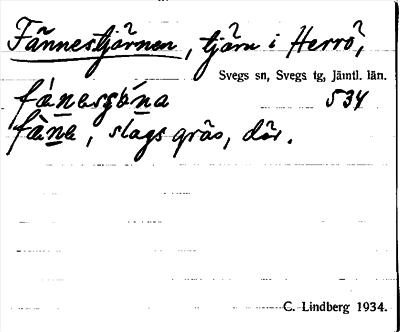 Fännestjärnen, tjärn i Herrö,
Svegs sn, Svegs tg, Jämtl. län.
534
, slags gräs, där.
C. Lindberg 1934.